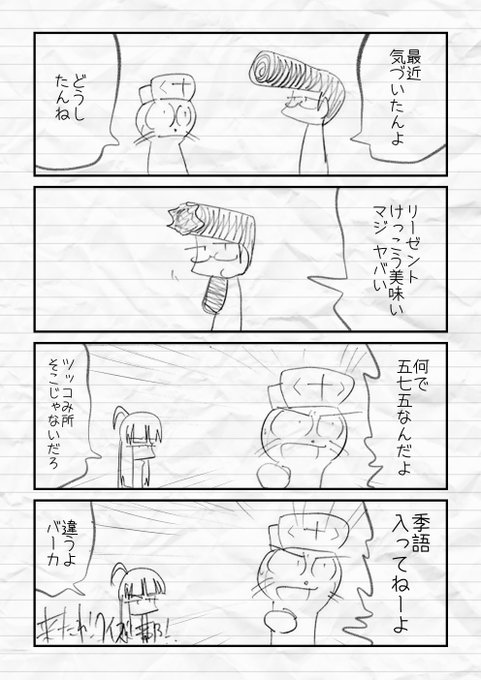 最近
気づいたんよ
どうし
たんね
リーゼント
けっこう美味い
マジ ヤバい
何で
五七五なんだよ
ツッコみ所
そこじゃないだろ
季語
入ってねーよ
違うよ
バーカ